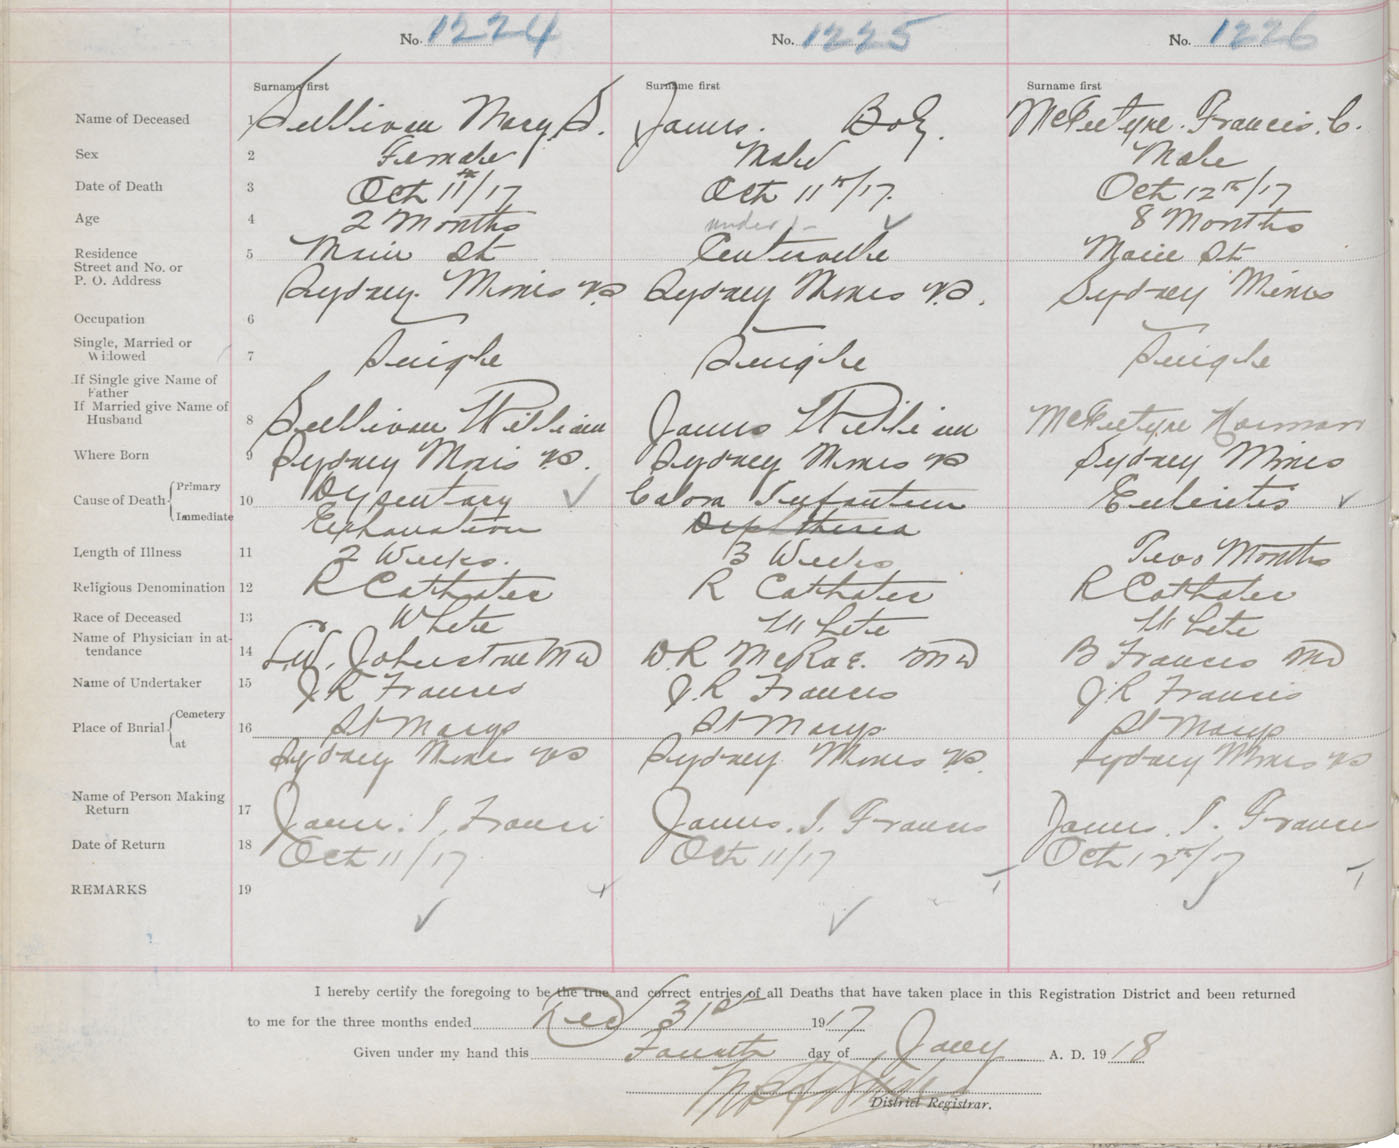 No. 1224 No. 1225 No. 1226
Surname first Surname first Surname first
Name of Deceased 1 Sullivan Mary S. James. Boy. McIntyre. Francis. C.
Sex 2 Female Male Male
Date of Death 3 Oct 11th/17 Oct 11th/17. Oct 12th/17
Age 4 2 Months under 1 ✓ 8 Months
Residence
Street and No. or
P. O. Address
5 Main St Centerville Main St
Sydney Mines NS Sydney Mines NS. Sydney Mines
Occupation 6
Single, Married or
Widowed
7 Single Single Single
If Single give Name of
Father
If Married give Name of
Husband
8 Sullivan William James William McIntyre Norman
Where Born 9 Sydney Mines NS. Sydney Mines NS Sydney Mines
Cause of Death Primary 10 Dysentary ✓ Calora Infantum Enteretis ✓
Immediate Exhaustion Diptherea
Length of Illness 11 2 Weeks. 3 Weeks Two Months
Religious Denomination 12 R Catholic R Catholic R Catholic
Race of Deceased 13 White White White
Name of Physician in at-
tendance
14 L.W. Johnstone MD D.R McRae. MD B Francis MD
Name of Undertaker 15 J.R Francis J.R Francis J.R Francis
Place of Burial Cemetery 16 St Marys St Marys St Marys
at Sydney Mines NS Sydney Mines NS. Sydney Mines NS
Name of Person Making
Return
17 James. J. Francis James. J. Francis James. J. Francis
Date of Return 18 Oct 11/17 Oct 11/17 Oct 12th/17
REMARKS 19
✓ ✓
I hereby certify the foregoing to be the true and correct entries of all Deaths that have taken place in this Registration District and been returned
to me for the three months ended Dec 31st 1917
Given under my hand this Fourth day of Jany A. D. 1918
District Registrar.